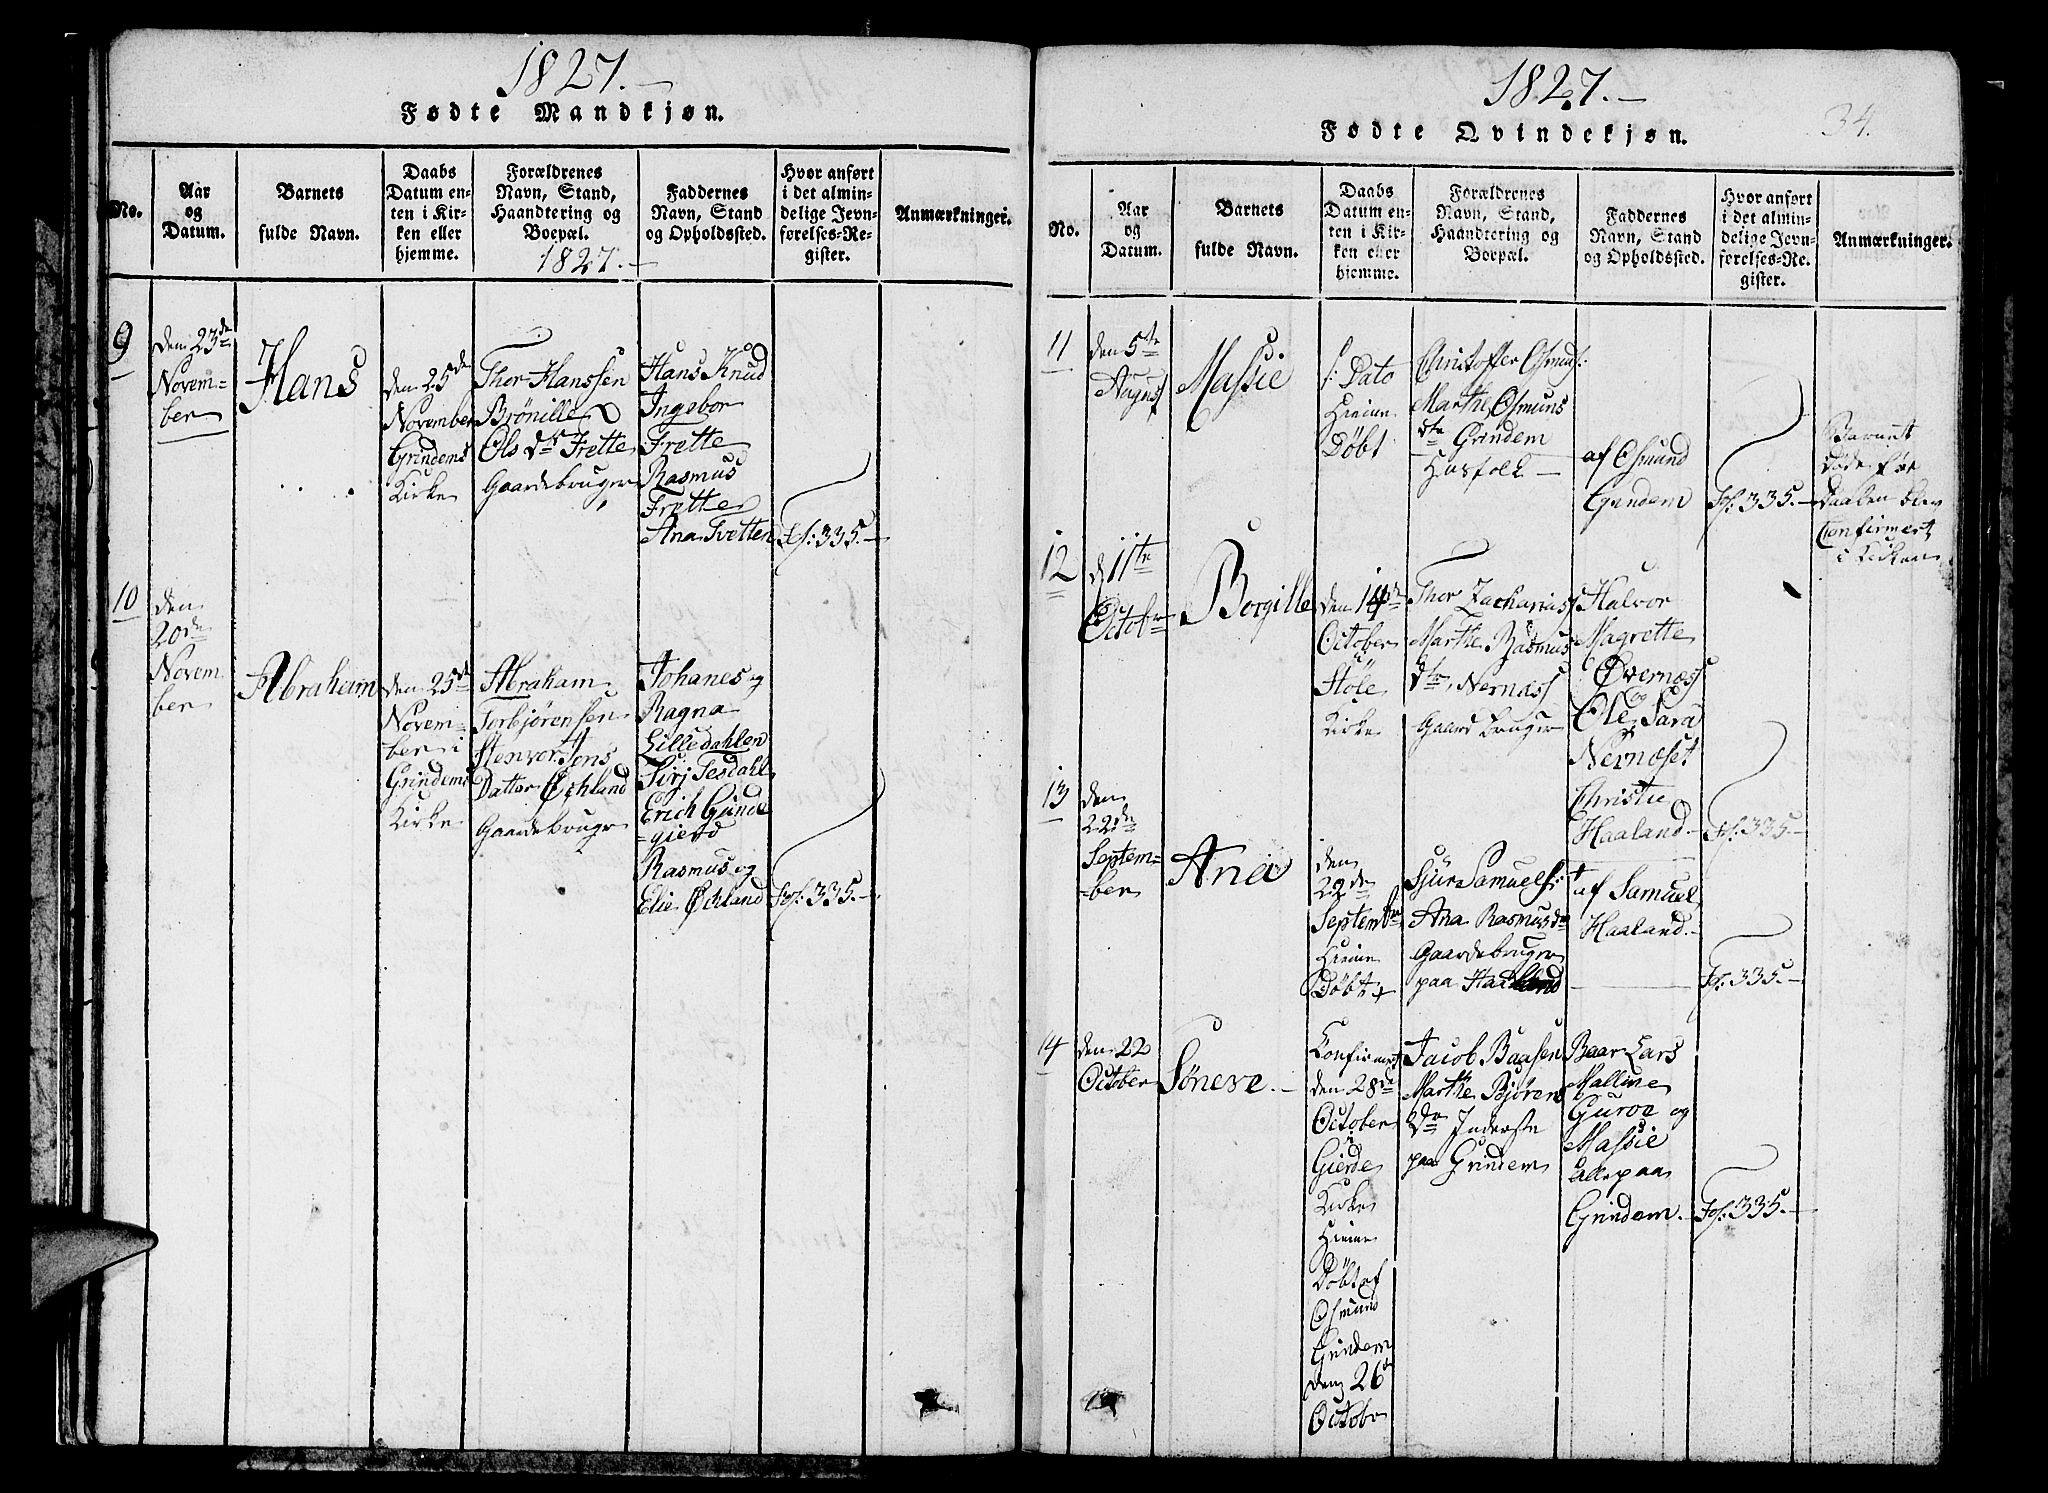 1827.
Fødte Mandkjøn.
No.
Aar
og
Datum.
Barnets
fulde Navn.
Daabs
Datum en-
ten i Kir-
ken eller
hjemme.
Forældrenes
Navn, Stand,
Haandtering og
Boepæl.
1827.
Faddernes
Navn, Stand
og Opholdssted.
Hvor anført
i det almin-
delige Jevn-
førelses-Re-
gister.
Anmærkninger.
9
den 23de
Novem-
ber
Hans
den 25de
November
Grindems
Kirke
Thor Hanssen
Brönille
Ols Dr Frette
Gaardebruger
Hans Knud
Ingebor
Frette
Rasmus
Frette
Ana Tvetten
Fol: 335.
10
den
20de
Novem
ber
Abraham
den 25de
Novem-
ber i
Grindems
Kirke
Abraham
Torbjörensen
Stenvor Jons
Datter Øchland
Gaardebruger
Johanes og
Ragna
Lilledahlen
Sirj Tesdahl
Erich Gunde
gierd
Rasmus og
Elie Øchland
Fol: 335.
1827.
34.
Fødte Qvindekjøn.
No.
Aar
og
Datum.
Barnets
fulde Navn.
Daabs
Datum en-
ten i Kir-
ken eller
hjemme.
Forældrenes
Navn, Stand,
Haandtering og
Boepæl.
Faddernes
Navn, Stand
og Opholdssted.
Hvor anført
i det almin-
delige Jevn-
førelses-Re-
gister.
Anmærkninger.
11
den 5te
August
Massie
Dato
Hieme
Döbt
Christoffer Osmuns:
Marthe Osmuns
dtr Grindem
Husfolk
af Osmund
Grindem
Fol: 335.
Barnet
döde før
Daaben blev
Confirmert
i Kirken
12
d 11te
October
Borgille
den 14de
October
Stöle
Kirke
Thor Zachariass
Marthe Rasmus
dtr Nernæss
Gaardbruger
Halvor
Magrette
Øvernæss
og
Ole Sara
Nernæset
Christie
Haaland
Fol: 335.
13
den
22de
Septem-
ber
Ana
den
22de
September
Hieme
Döbt
Sjur Samuels:
Ana Rasmusdr
Gaardebruger
paa Haaland
af Samuel
Haaland
Fol: 335.
14
den 22
October
Söneve.
Confirmert
den 28de
October
i
Gierde
Kirke
Hieme
Döbt af
Osmund
Grindem
den 26
October
Jacob Baarsen
Marthe Bjørens
Dr Inderste
paa Grindem
Baar Lars
Malline
Guroe og
Massie
alle paa
Grindem
Fol: 335.